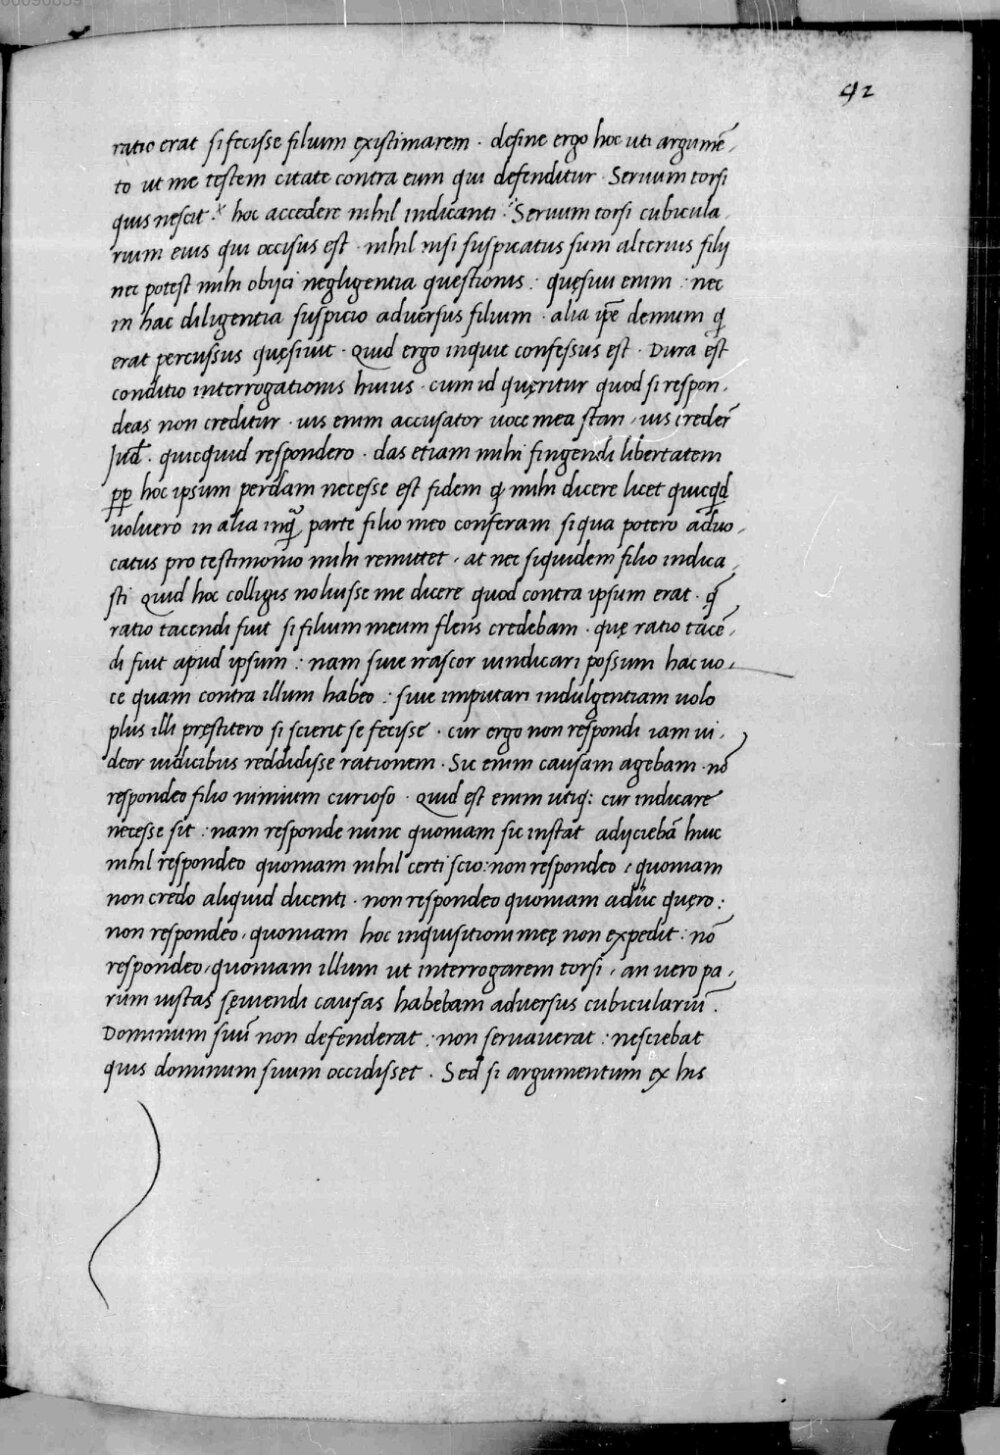 92
ratio erat si fecisse filium existimarem · desine ergo hoc uti argumē,
to ut me testem citate contra eum qui defenditur · Seruum torsi
quis nescit · hoc accedere nihil indicanti · Seruum torsi cubicula,
rium eius qui occisus est · nihil nisi suspicatus sum alterius filij
nec potest mihi obijci negligentia quęstionis : quęsiui enim : nec
in hac diligentia suspicio aduersus filium · alia ip̄e demum q̄
erat percussus quęsiuit · Quid ergo inquit confessus est · Dura est
conditio interrogationis huius · cum id quęritur quod si respon,
deas non creditur · uis enim accusator uoce mea stari, uis creder̄
Jud̄ · quicquid respondero · das etiam mihi fingendi libertatem
pp hoc ipsum perdam necesse est fidem q̄ mihi dicere licet quicq̄d
uoluero in alia inq̄ parte filio meo conferam si qua potero aduo,
catus pro testimonio mihi remittet, at nec siquidem filio indica,
sti Quid hoc colligis noluisse me dicere quod contra ipsum erat · q̄
ratio tacendi fuit si filium meum flens credebam · quę ratio tacē,
di fuit apud ipsum : nam siue irascor uindicari possum hac uo,
ce quam contra illum habeo : siue imputari indulgentiam uolo
plus illi pręstitero si scierit se fecisse · cur ergo non respondi iam ui,
deor iudicibus reddidisse rationem · Sic enim causam agebam · nō
respondeo filio nimium curioso · Quid est enim utiq: cur indicare
necesse sit : nam responde nunc quoniam sic instat adijciebā huic
nihil respondeo quoniam nihil certi scio: non respondeo, quoniam
non credo aliquid dicenti · non respondeo quoniam adhuc quęro :
non respondeo, quoniam hoc inquisitioni meę non expedit : nō
respondeo, quoniam illum ut interrogarem torsi, an uero pa,
rum iustas sęuiendi causas habebam aduersus cubiculariū ·
Dominum suū non defenderat : non seruauerat : nesciebat
quis dominum suum occidisset · Sed si argumentum ex his